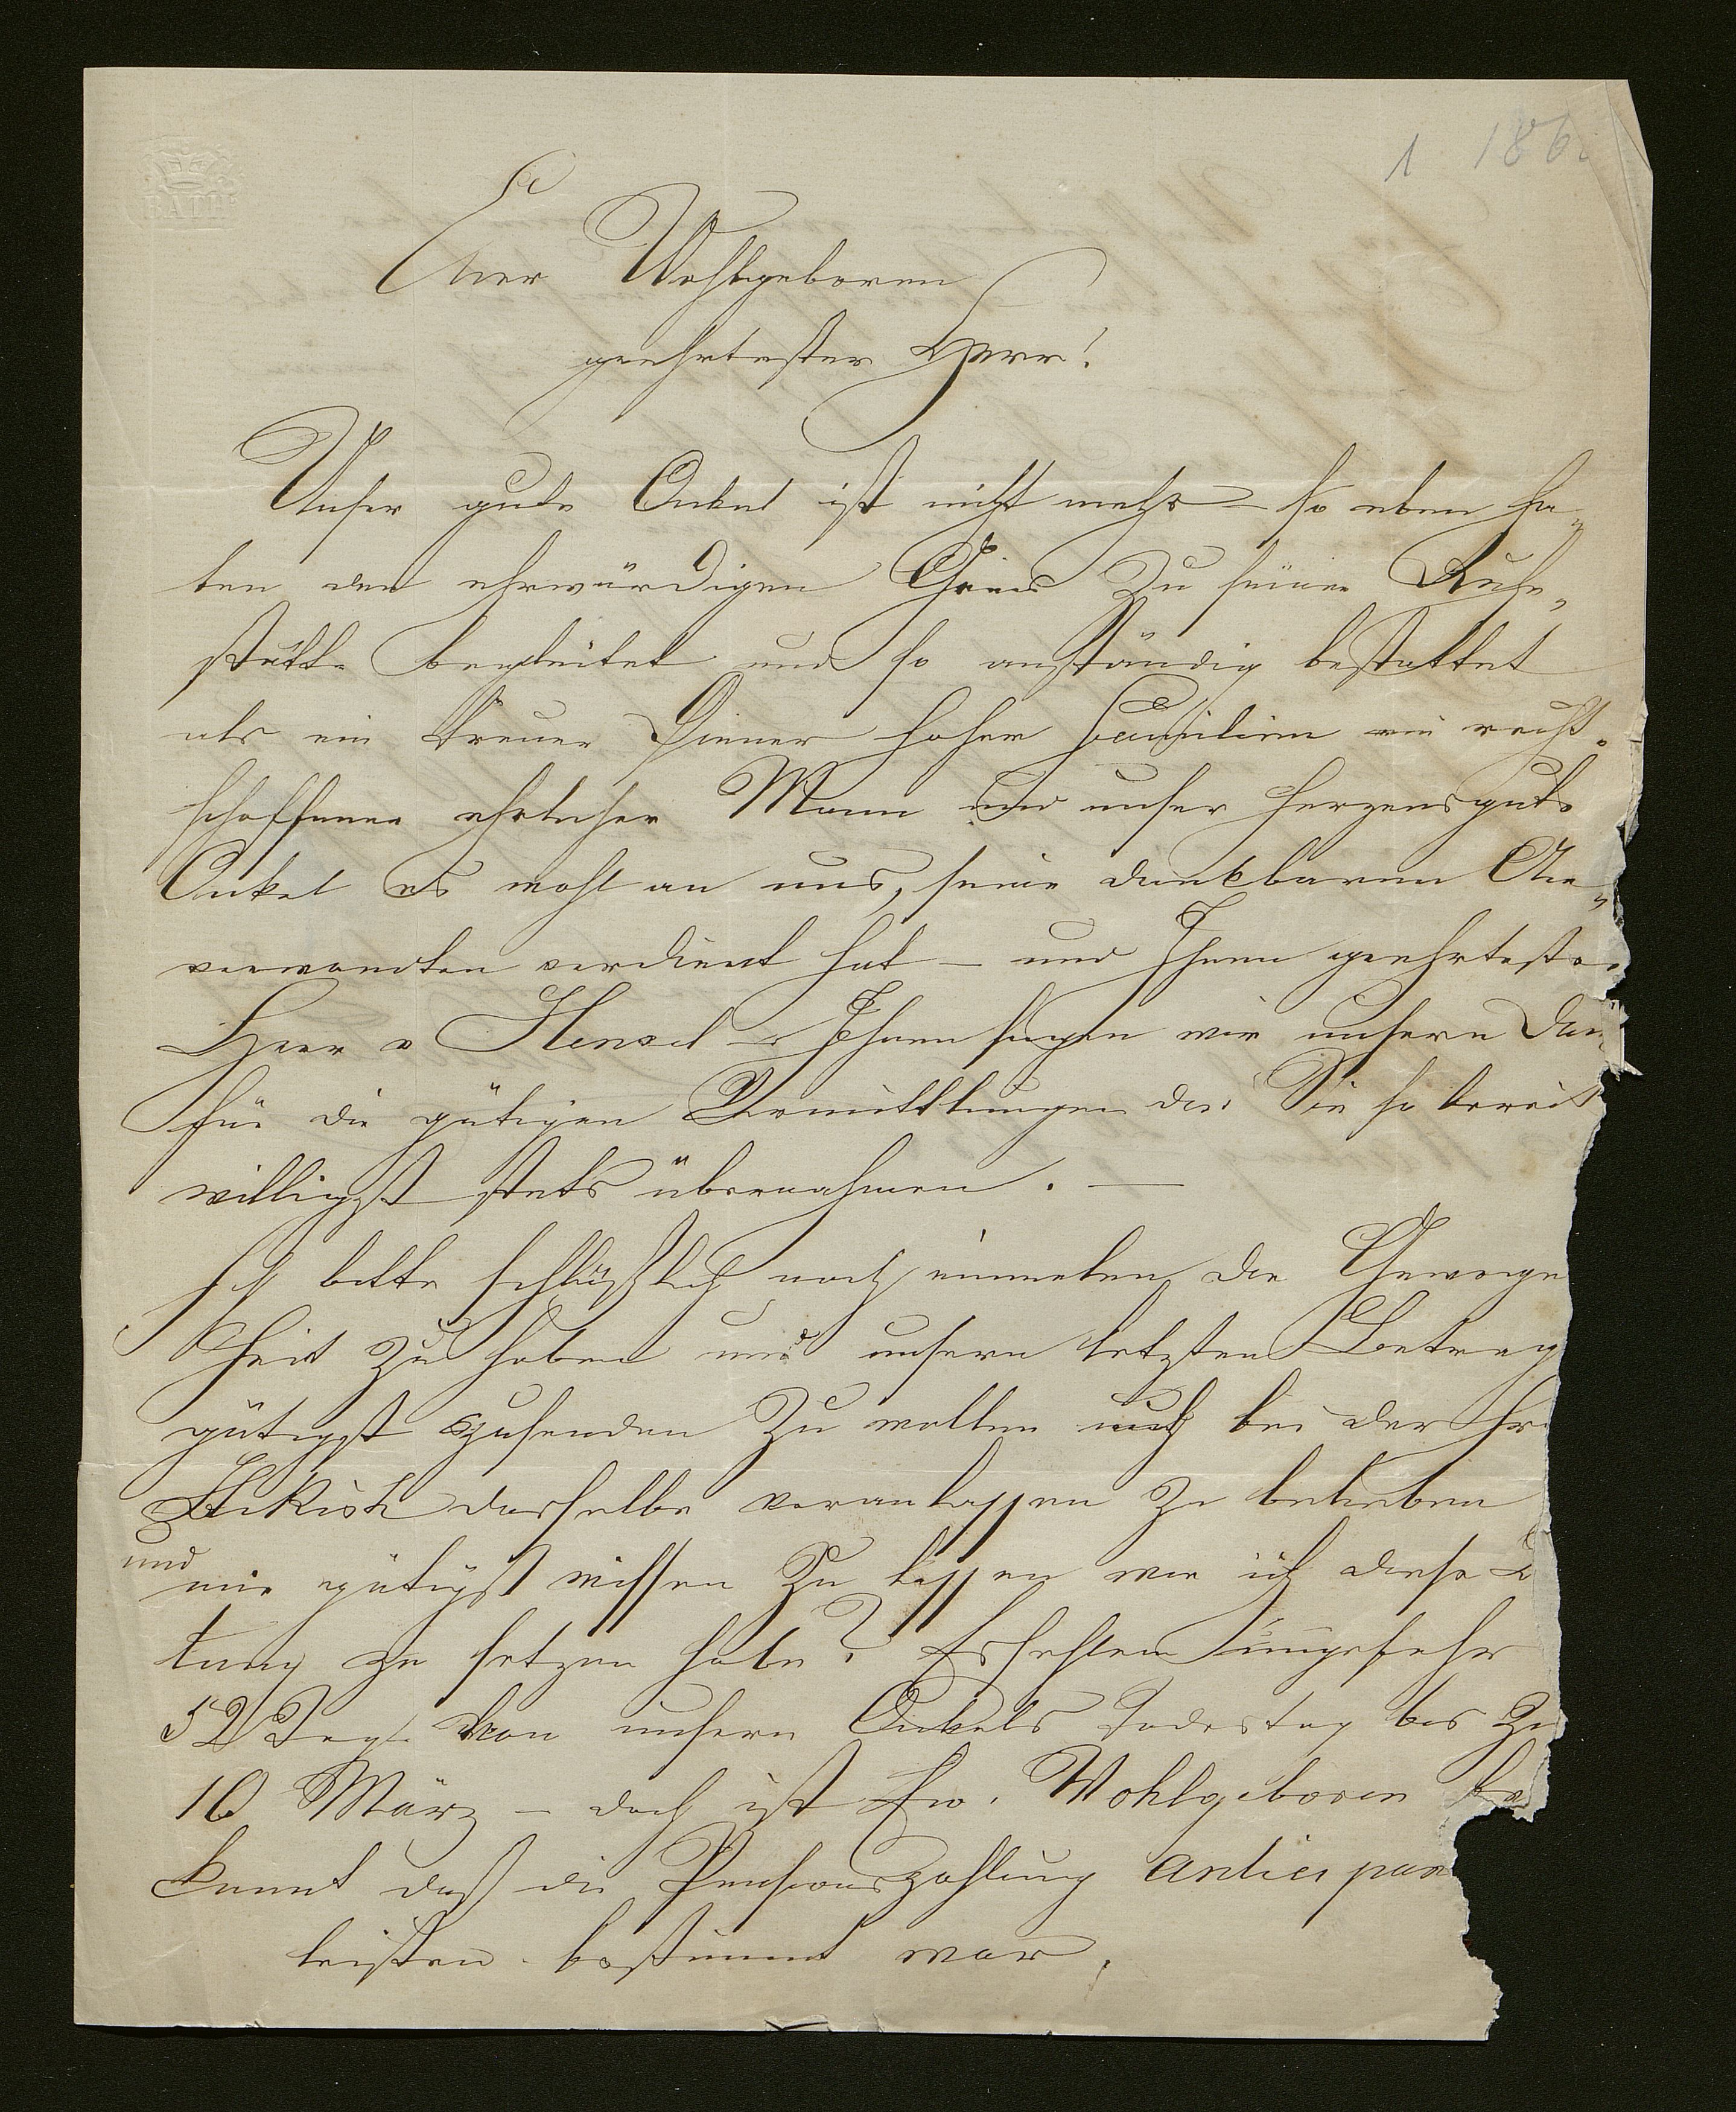 1 186
BATH
Euer Wohlgeboren
geehrtester Herr!
Unser gute Onkel ist nicht mehr – so eben ha-
ten den ehrwürdigen Greis zu seiner Ruhe-
stätte begleitet und so anständig bestattet
als ein treuer Diener hoher Familien ein recht-
schaffener ehrlicher Mann und unser herzensgute
Onkel es wohl an uns, seine dankbaren An-
verwandten verdient hat – und Ihnen geehrtester
Herr v Hensel – Ihnen sagen wir unsern Dan
für die gütigen Vermittlungen die Sie so bereit
willigst stets übernahmen. —
Ich bitte schlüßlich noch einmal die Gewoge
heit zu haben uns unsern letzten Betrag
gütigst zusenden zu wollen auch bei der
dasselbe veranlassen zu belieben
und
mir gütigst wissen zu lassen wie ich diese
tung zu setzen habe? Es fehlen ungefehr
52 Tage von unsern Onkels Todestag bis zu
10 März – doch ist Ew. Wohlgeboren be
kannt daß die Pensionszahlung anticipan
leisten bestimmt war.